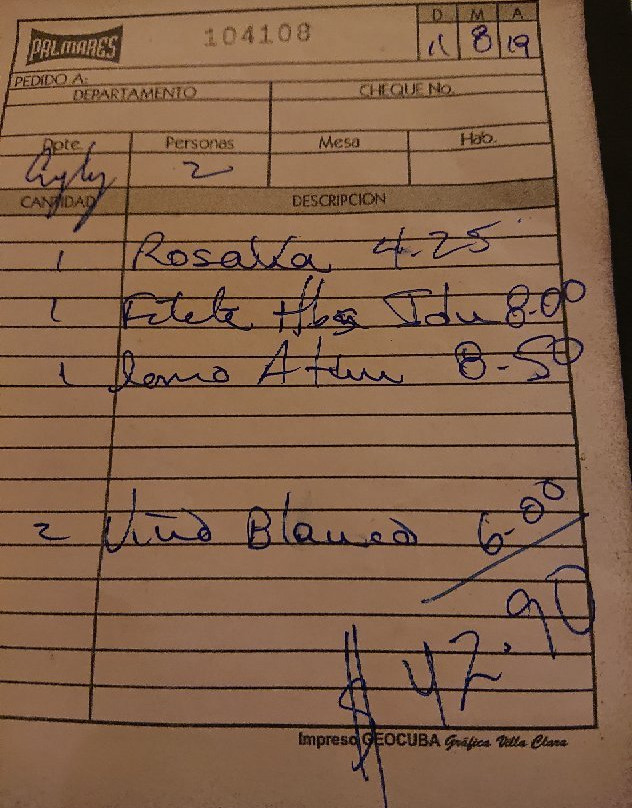 PALMARES 104108 D M A
11 8 19
PEDIDO A:
DEPARTAMENTO CHEQUE No.
Dpte. Personas Mesa Hab.
2
CANTIDAD DESCRIPCION
1 4.25
1 Filete 8.00
1 Lomo Atun 8-50
2 Vino Blanco 6.00
$ 42.90
Impreso GEOCUBA Gráfica Villa Clara